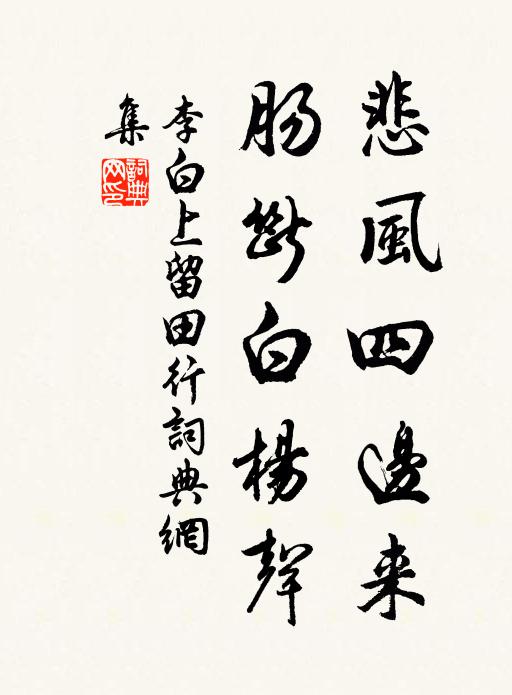 悲風四邊来
肠斷白楊聲
李白上留田行詞典網
集
詞典网印